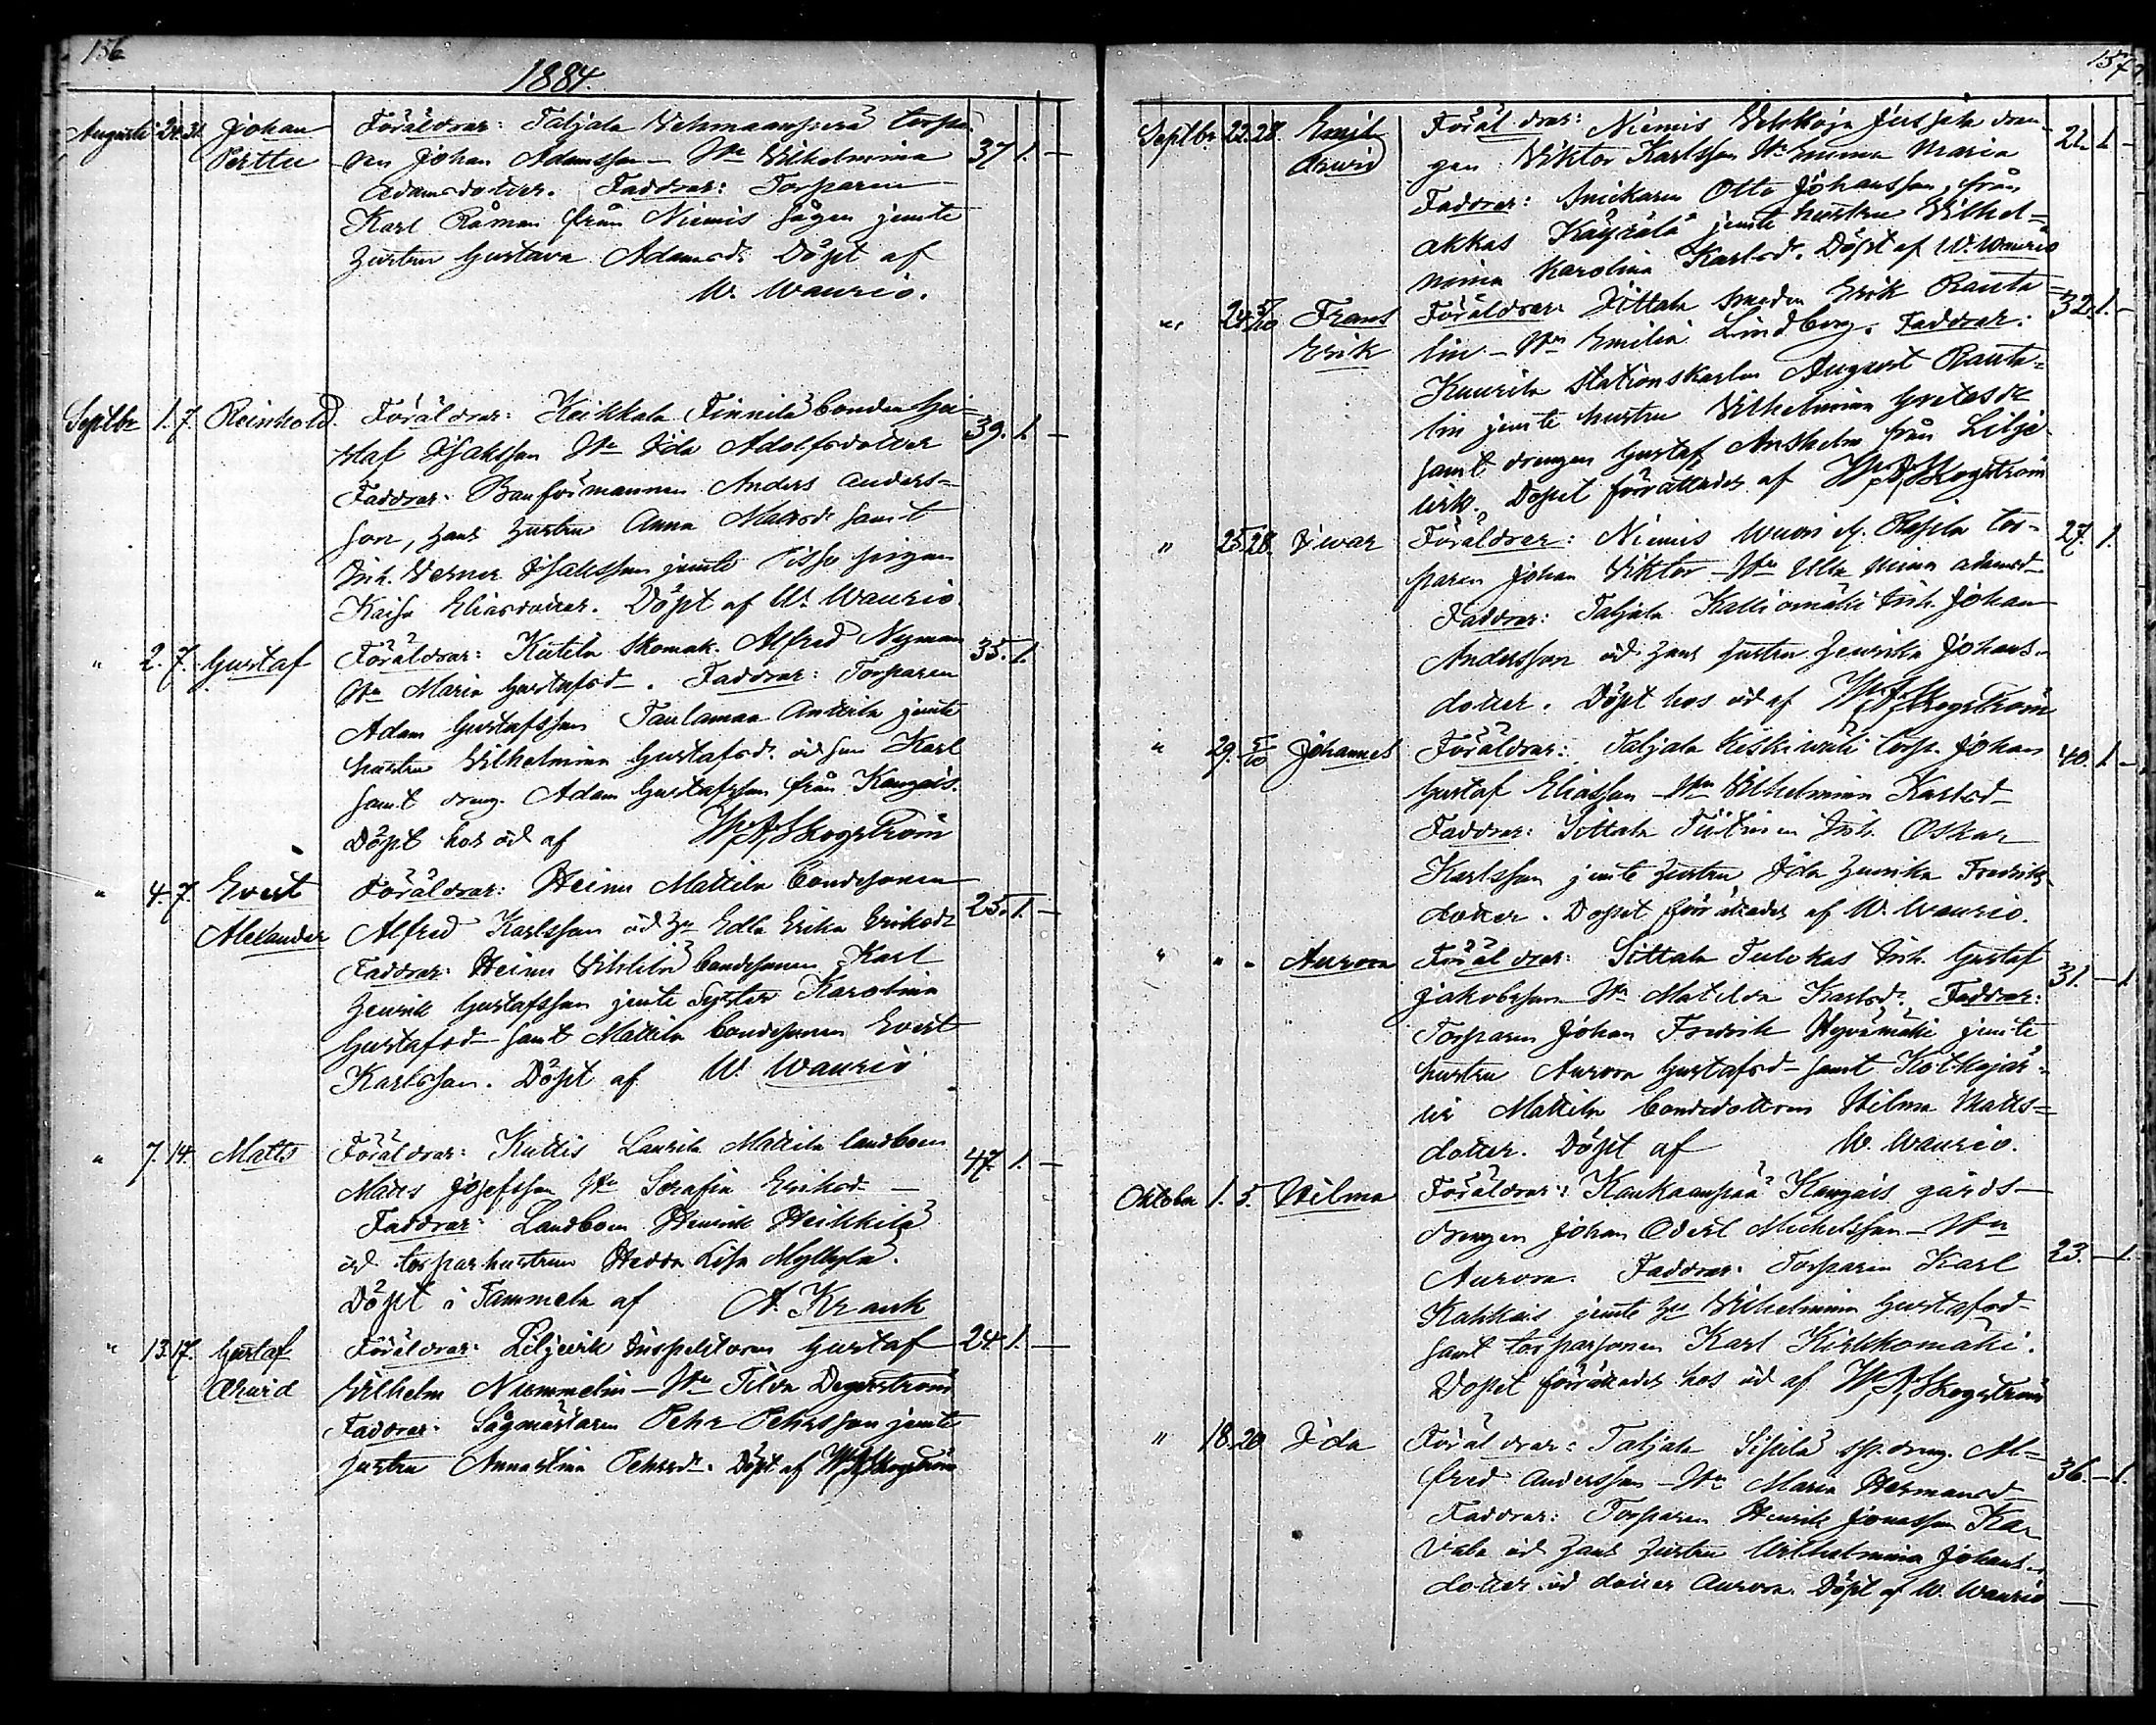 156
1884.
Augusti 24. 31. Johan Föräldrar: Taljala Vehmaanperä torpa-
Perttu ren Johan Adamsson – Hu Vilhelmina 37 1. –
Adamsdotter. Faddrar: Torparen
Karl Råman från Niemis sågen jemte
hustru Gustava Adamsd. Döpt af
W. Waurio.
Septbr 1. 7. Reinhold. Föräldrar: Heikkala Finnilä bonden Gu-
staf Isaksson Hu Ida Adolfsdotter 39. 1. –
Faddrar: Banförmannen Anders Anders-
son, hans hustru Anna Mattsd. samt
Inh. Verner Isaksson jemte pigan
Kaisa Eliasdotter. Döpt af W. Waurio
" 2. 7. Gustaf Föräldrar: Kutila skomak. Alfred Nyman 35. 1.
Hu Maria Gustafsd. Faddrar: Torparen
Adam Gustafsson Taulamaa Anttila jemte
hustru Vilhelmina Gustafsd. och son Karl
samt dreng. Adam Gustafsson från Kangais.
Döpt hos och af W. A. Skogström
" 4. 7. Evert Föräldrar: Heinu Mattila bondesonen 25. 1. –
Alexander Alfred Karlsson och Hu Edla Erika Eriksdr
Faddrar: Heinu bondesonen Karl
Henrik Gustafsson jemte syster Karolina
Gustafsd – samt Mattila bondesonen Evert
Karlsson. Döpt af W. Waurio
" 7. 14. Matts Föräldrar: Kuttis Laurila Mattila landboen 47 1. –
Matts Josefsson Hu Serafia Eriksd –
Faddrar: Landboen Henrik Heikkilä
och torparhustrun Hedda Lisa Myllylä.
Döpt i Tammela af A. Krank
" 13. 17. Gustaf Föräldrar: Liljevik Inspektoren Gustaf 24 1. –
Arvid Vilhelm Nummelin – Hu Tilda Degerström
Faddrar: Sågmästaren Pehr Pehrsson jemte
hustru Annastina Pehrsd. Döpt af W. A. Skogström
157
Septbr 22. 28. Emil Föräldrar: Niemis Vekkoja Jussila dren- 22. 1. –
Arvid gen Viktor Karlsson Hu Emma Maria
Faddrar: Snickaren Otto Johansson, från
Akkas Käyrälä jemte hustru Vilhel-
mina Karolina Karlsd. Döpt af W. Waurio
" 24. 5/10 Frans Föräldrar: Sittala smeden Erik Rauta- 32. 1. –
Erik lin – Hu Emilia Lindberg. Faddrar:
Kaurila stationskarlen August Rauta-
lin jemte hustru Vilhelmina
samt drengen Gustaf Anshelm från Lilje-
vik. Dopet förrättades af W. A. Skogström
" 25. 28. Ivar Föräldrar: Niemis tor- 27. 1.
paren Johan Viktor – Hu Ulla Mina Adamsd
Faddrar: Taljala Kalliomäki Inh. Johan
Andersson och hans hustru Henrika Johans-
dotter. Döpt hos och af W. A. Skogström
" 29. 5/10 Johannes Föräldrar: Taljala Keskiwäli torp. Johan 40. 1. –
Gustaf Eliasson – Hu Vilhelmina Karlsd –
Faddrar: Sittala Inh. Oskar
Karlsson jemte hustru Ida Henrika Fredriks-
dotter. Dopet förrättades af W. Waurio.
" " " Aurora Föräldrar: Sittala Tulokas Inh. Gustaf 31. – 1.
Jakobsson – Hu Matilda Karlsd. Faddrar:
Torparen Johan Fredrik Hyvämäki jemte
hustru Aurora Gustafsd – samt Kotkajär-
vi Mattila bondedottern Hilma Matts-
dotter. Döpt af W. Waurio.
Oktober 1. 5. Hilma Föräldrar: Kaukaanpää Kangais gårds-
drengen Johan Odert Michelsson – Hu
Aurora. Faddrar: Torparen Karl 23. – 1.
Kakkais jemte Hu Vilhelmina Gustafsd –
samt torparsonen Karl Kirkkomäki.
Dopet förrättades hos och af W. A. Skogström
" 18. 20 Ida Föräldrar: Taljala Sipilä sp. dreng. Al-
fred Andersson – Hu Maria Hermansd – 36. – 1.
Faddrar: Torparen Henrik Jonasson Kar
vala och hans hustru Wilhelmina Johans-
dotter och dotter Aurora. Döpt af W. Waurio –